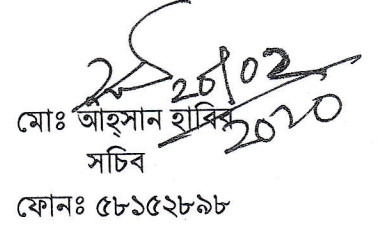 20/02
2020
মোঃ আহ্সান হাবিব
সচিব
ফোনঃ ৫৮১৫২৮৯৮